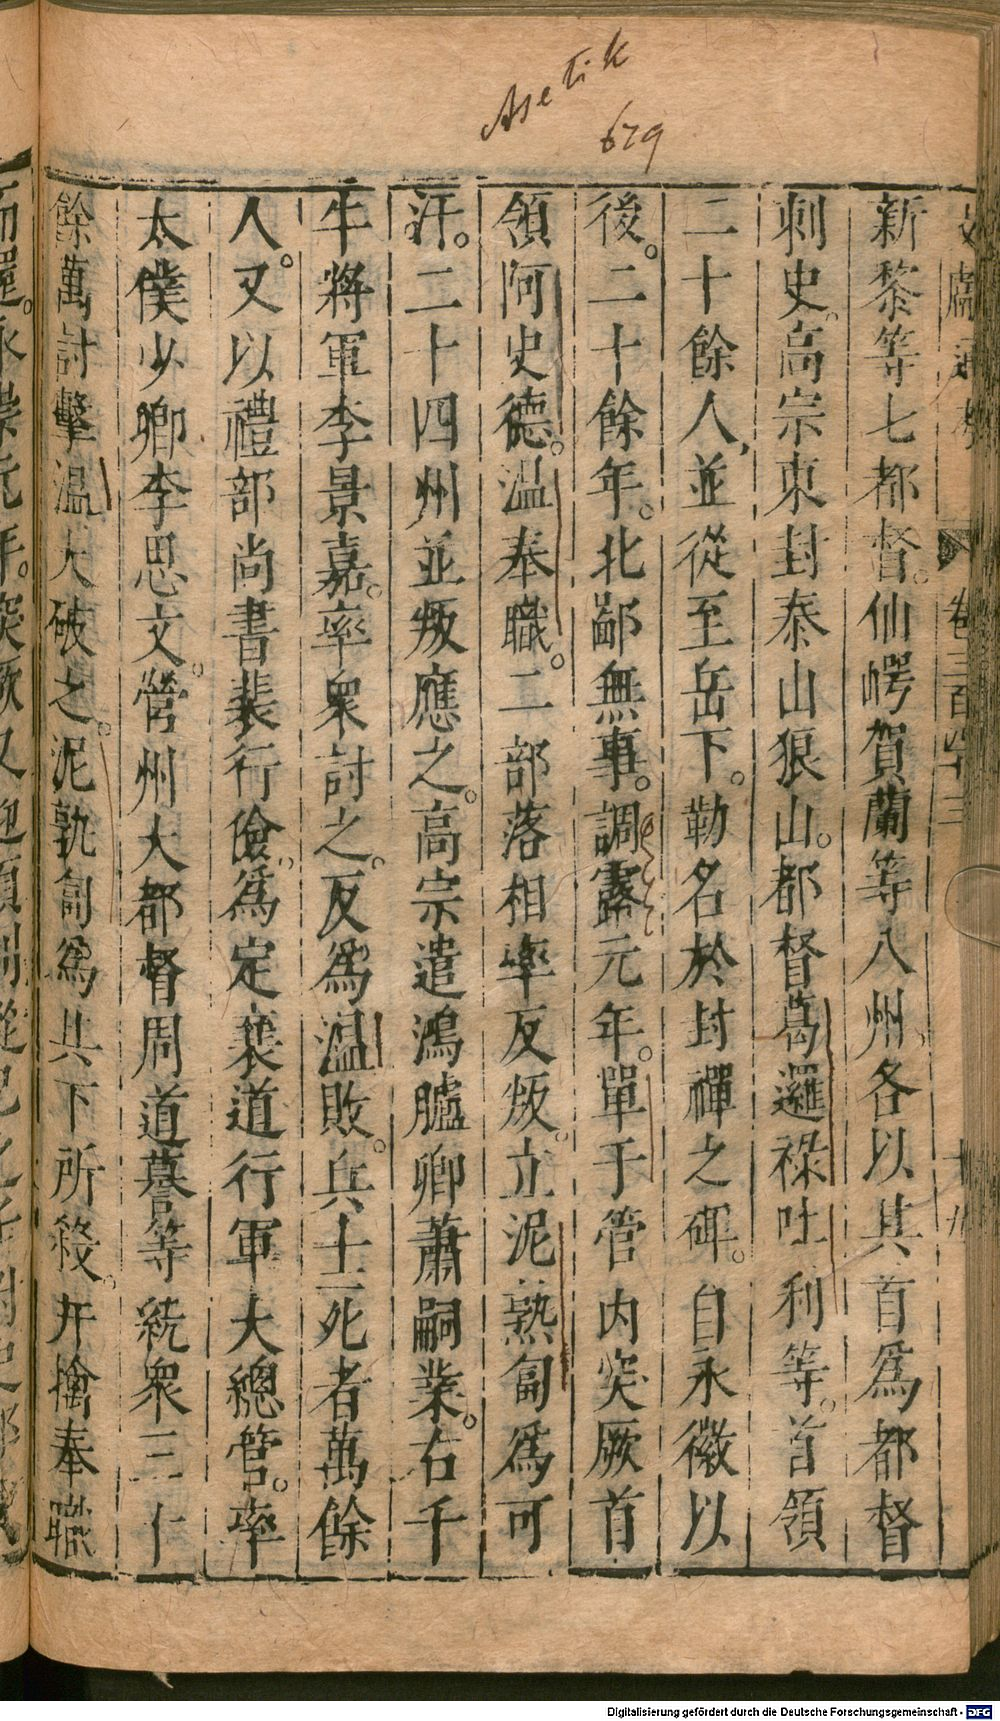 Asetik
679
新黎等七都督。仙崿賀蘭等八州、各以其首爲都督
刺史。高宗東封泰山狼山。都督葛邏祿吐利等。首領
二十餘人、並從至岳下。勒名於封禪之碑。自永徽以
後。二十餘年。北鄙無事。調露元年。單于管內突厥首
領阿史德。溫奉職。二部落相率反叛。立泥熟匐爲可
汗。二十四州並叛應之。高宗遣鴻臚卿蕭嗣業。右千
牛將軍李景嘉。率衆討之。反爲溫敗。兵士死者萬餘
人。又以禮部尚書裴行儉、爲定襄道行軍大總管。率
太僕少卿李思文。營州大都督周道謩等統衆三十
餘萬討擊溫大破之。泥孰匐爲其下所殺。并擒奉職
卷三百四十三
Digitalisierung gefördert durch die Deutsche Forschungsgemeinschaft - DFG